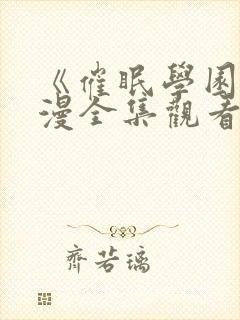 《催眠學園
漫全集觀看
齊若璃